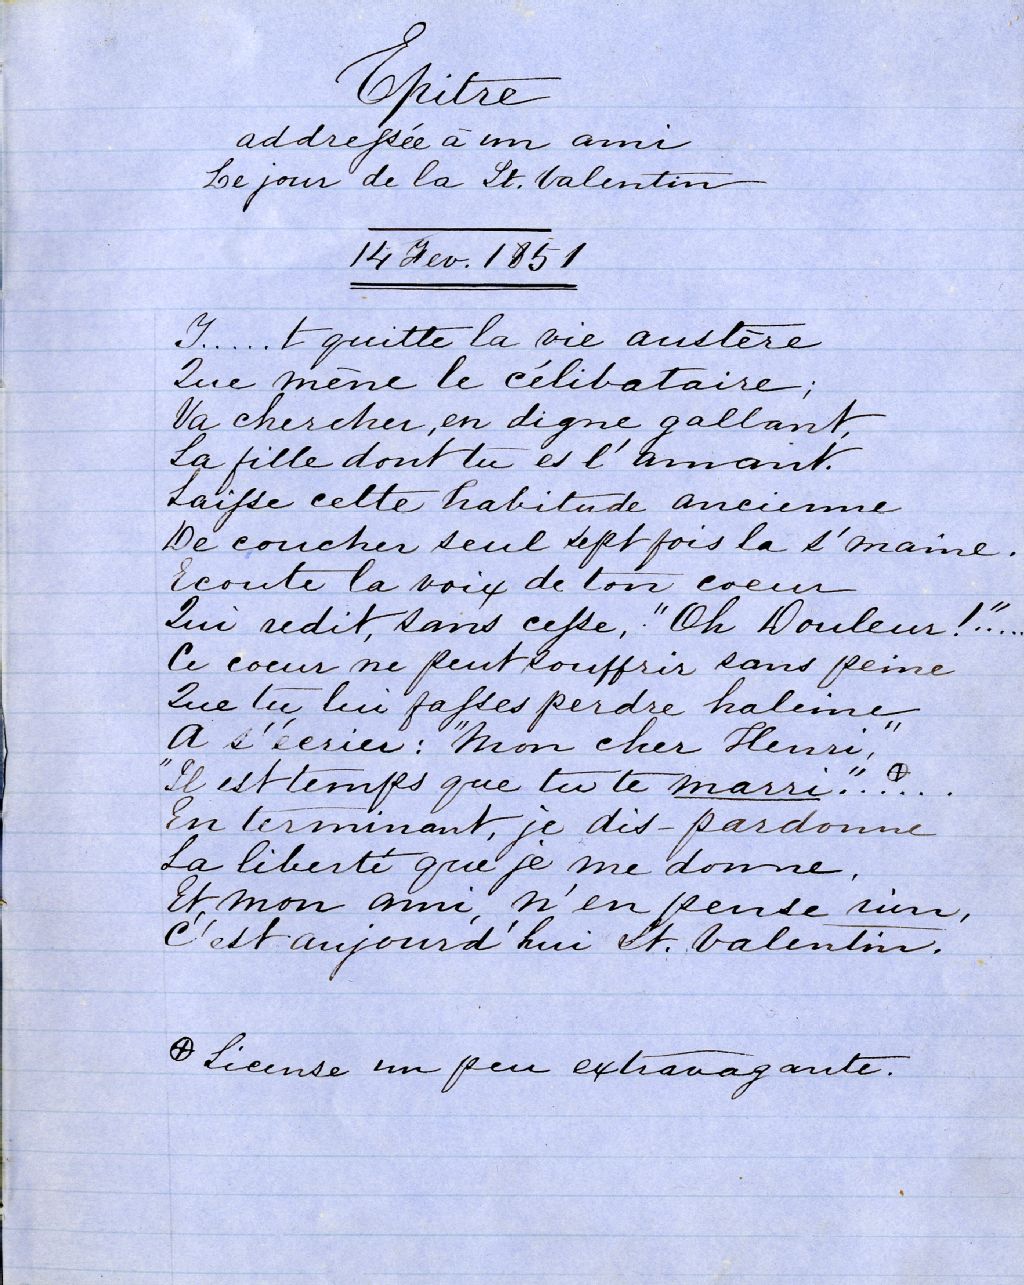 Epitre
addressée à un ami
Le jour de la St. Valentin
14 Fev. 1851
T.....t quitte la vie austère
Que mène le célibataire;
Va chercher, en digne gallant,
La fille dont tu es l'amant.
Laisse cette habitude ancienne
De coucher seul sept fois la s'maine.
Ecoute la voix de ton coeur
Qui redit, sans cesse, "Oh Douleur!".....
Ce coeur ne peut souffrir sans peine
Que tu lui fasses perdre haleine
A s'écrier: "Mon cher Henri,"
"Il est temps que tu te marri"..⊕....
En terminant, je dis - pardonne
La liberté que je me donne,
Et, mon ami, n'en pense rien,
C'est aujourd'hui St. Valentin.
⊕ License un peu extravagante.